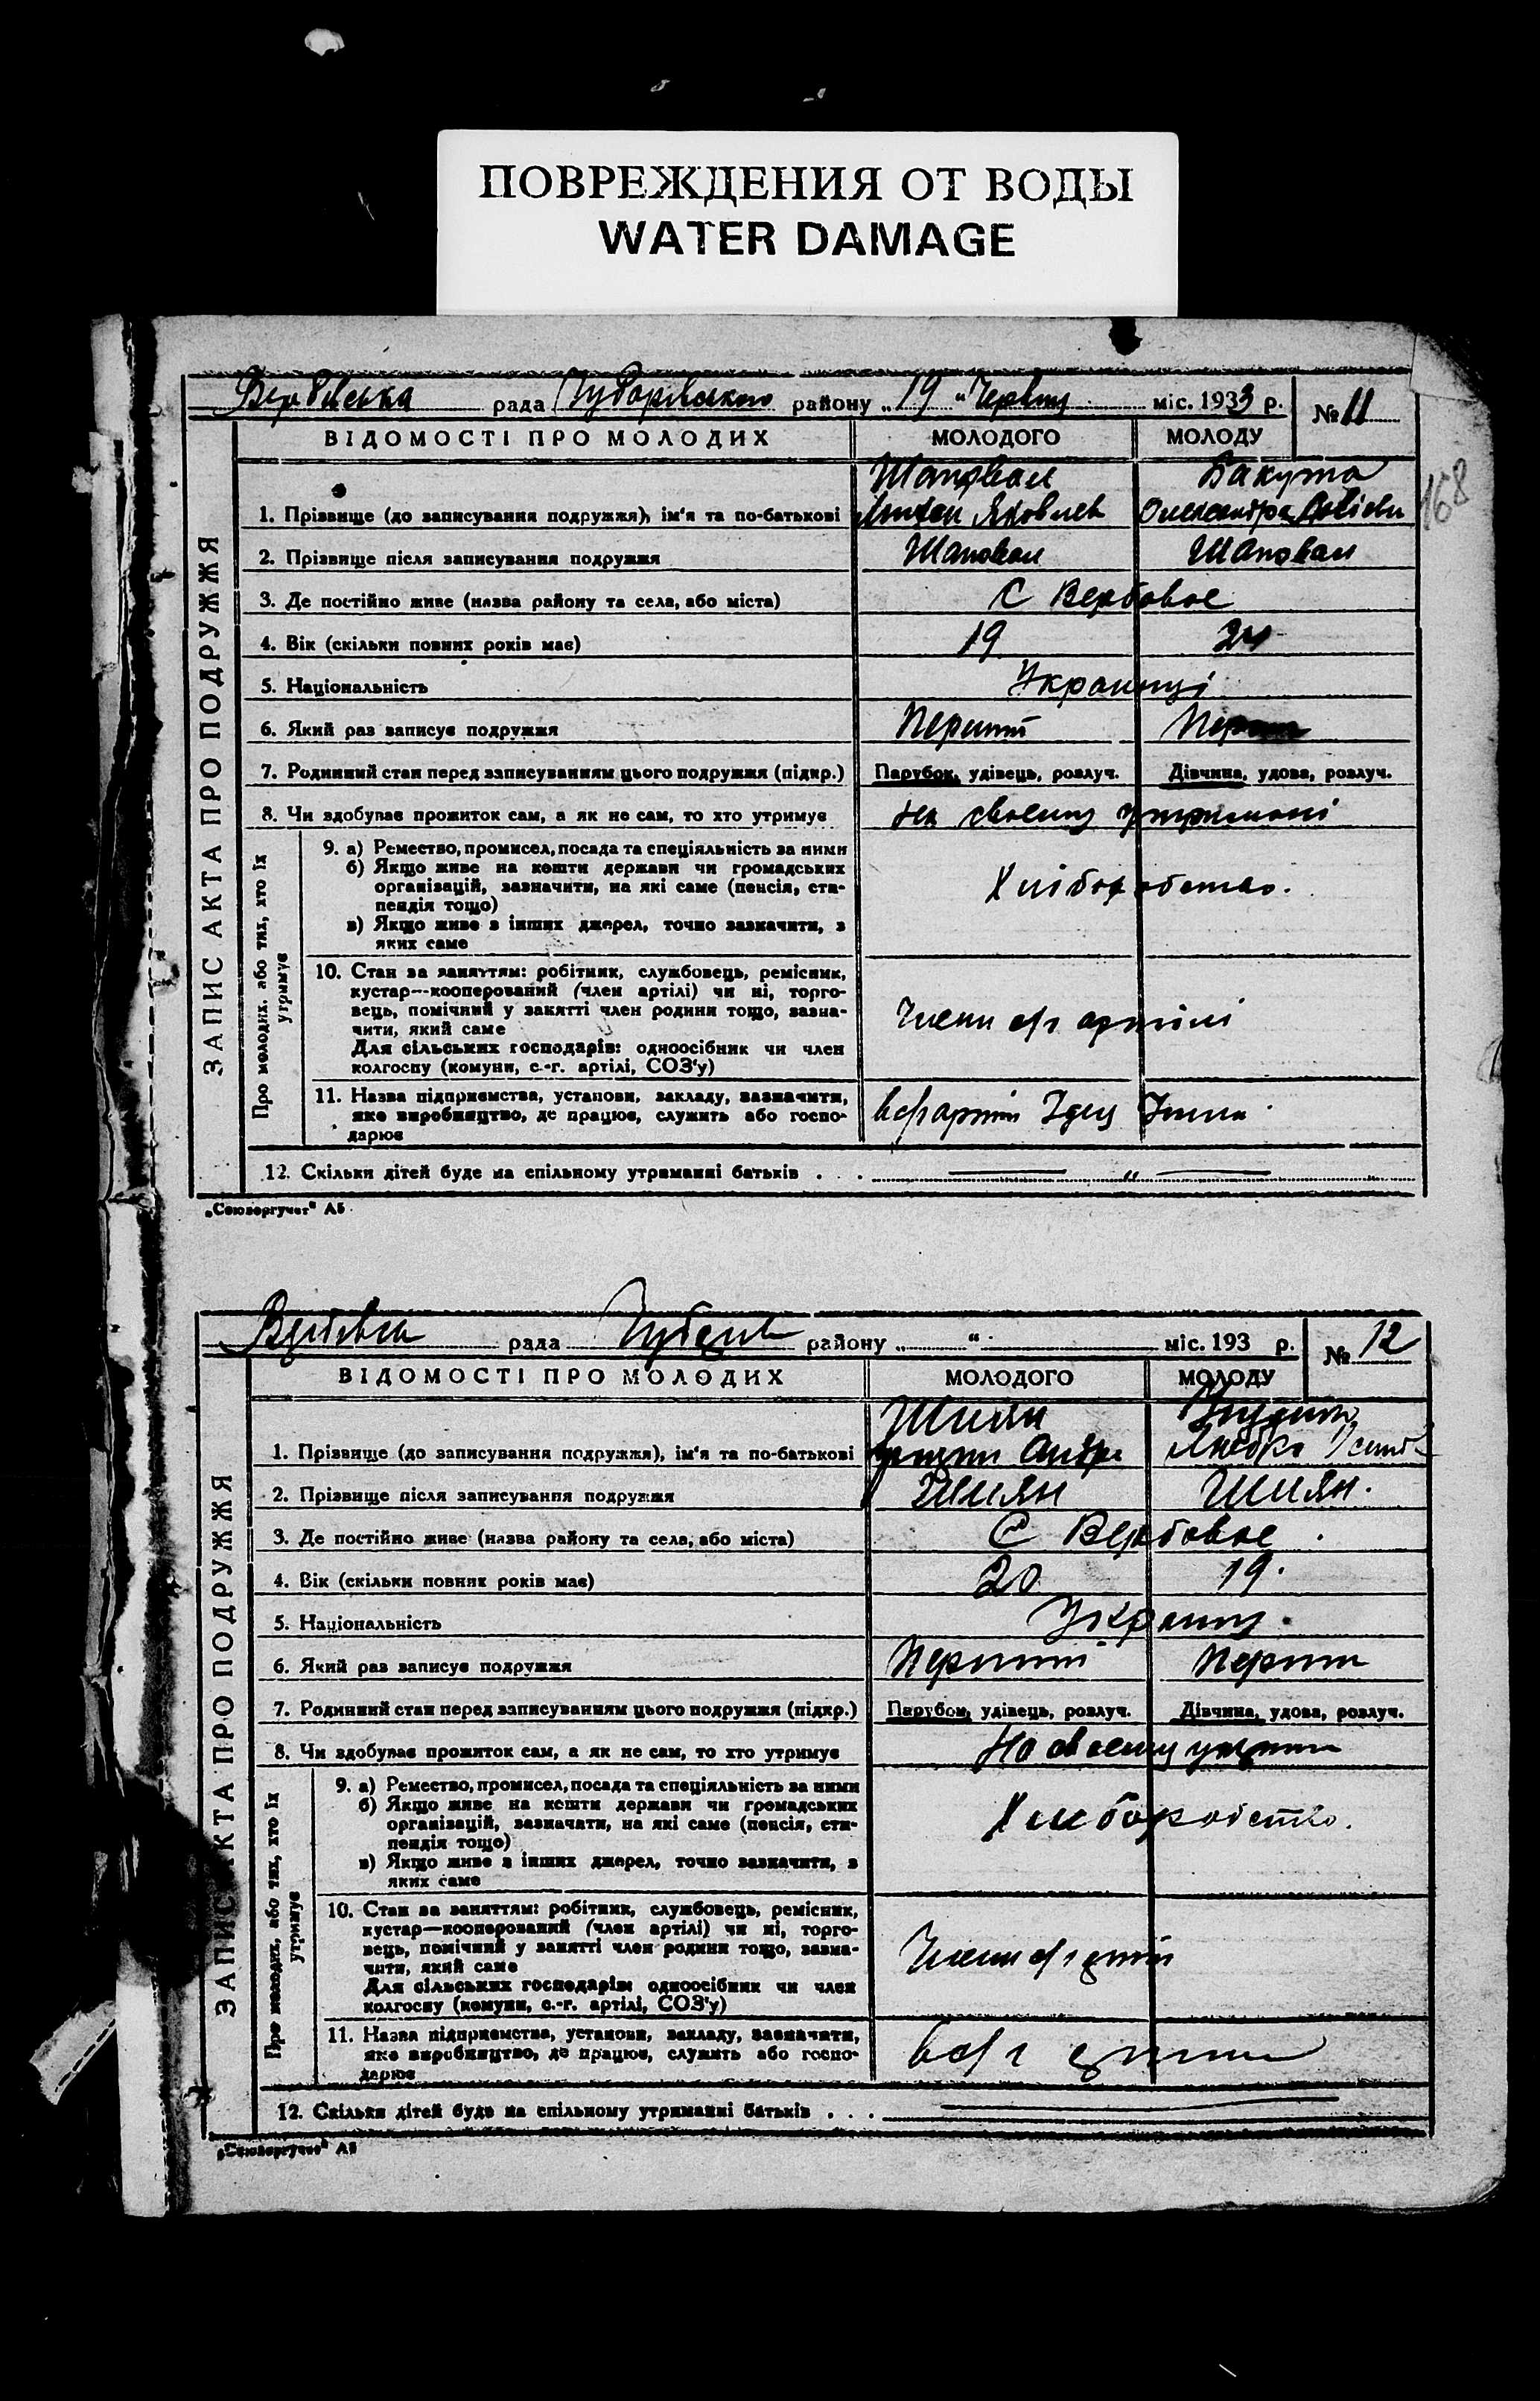 ПОВРЕЖДЕНИЯ ОТ ВОДЫ
WATER DAMAGE
Вербівська рада району „19“ Червця міс. 1933 р. № 11
ВІДОМОСТІ ПРО МОЛОДИХ МОЛОДОГО МОЛОДУ
168
Шаповал Бакута
1. Прізвище (до записування подружжя), ім'я та по-батькові Яковлев Олександра
2. Прізвище після записування подружжя Шаповал Шаповал
3. Де постійно живе (назва району та села, або міста) С Вербовое
4. Вік (скільки повних років має) 19
5. Національність Українці
6. Який раз записує подружжя Перший
7. Родинний стан перед записуванням цього подружжя (підкр.) Парубок, удівець, розлуч. Дівчина, удова, розлуч.
8. Чи здобуває прожиток сам, а як не сам, то хто утримує На своему утриманні
ЗАПИС АКТА ПРО ПОДРУЖЖЯ
Про молодих, або тих, хто їх утримує
9. а) Ремество, промисел, посада та спеціяльність за ними
б) Якщо живе на кошти держави чи громадських
організацій, зазначити, на які саме (пенсія, сти-
пендія тощо)
Хліборобство.
в) Якщо живе з інших джерел, точно зазначити, з
яких саме
10. Стан за заняттям: робітник, службовець, ремісник,
кустар—кооперований (член артілі) чи ні, торго-
вець, помічний у занятті член родини тощо, зазна-
чити, який саме
Члени с/г артілі
Для сільських господарів: одноосібник чи член
колгоспу (комуни, с.-г. артілі, СОЗ'у)
11. Назва підприємства, установи, закладу, зазначити,
яке виробництво, де працює, служить або госпо-
дарює
12. Скільки дітей буде на спільному утриманні батьків . . .
„Союзоргучет“ А5
рада району „ “ міс. 193 р. № 12
ВІДОМОСТІ ПРО МОЛОДИХ МОЛОДОГО МОЛОДУ
Шиян
1. Прізвище (до записування подружжя), ім'я та по-батькові
2. Прізвище після записування подружжя Шиян Шиян.
3. Де постійно живе (назва району та села, або міста) С Вербовое
4. Вік (скільки повних років має) 20 19.
5. Національність
6. Який раз записує подружжя Перший
7. Родинний стан перед записуванням цього подружжя (підкр.) Парубок, удівець, розлуч. Дівчина, удова, розлуч.
8. Чи здобуває прожиток сам, а як не сам, то хто утримує На своему
ЗАПИС АКТА ПРО ПОДРУЖЖЯ
Про молодих, або тих, хто їх утримує
9. а) Ремество, промисел, посада та спеціяльність за ними
б) Якщо живе на кошти держави чи громадських
організацій, зазначати, на які саме (пенсія, сти-
пендія тощо)
Хліборобство.
в) Якщо живе з інших джерел, точно зазначити, з
яких саме
10. Стан за заняттям: робітник, службовець, ремісник,
кустар—кооперований (член артілі) чи ні, торго-
вець, помічний у занятті член родини тощо, зазна-
чити, який саме
Члени с/г
Для сільських господарів: одноосібник чи член
колгоспу (комуни, с.-г. артілі, СОЗ'у)
11. Назва підприємства, установи, закладу, зазначити,
яке виробництво, де працює, служить або госпо-
дарює
12. Скільки дітей буде на спільному утриманні батьків . . .
„Союзоргучет“ А5